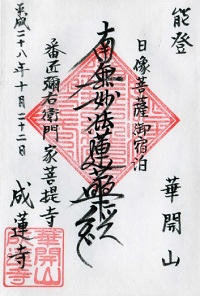 能登
華開山
日像菩薩御宿泊
南無妙法蓮華経
番匠彌右衛門家菩提寺
成蓮寺
平成二十八年十月二十二日
華開山